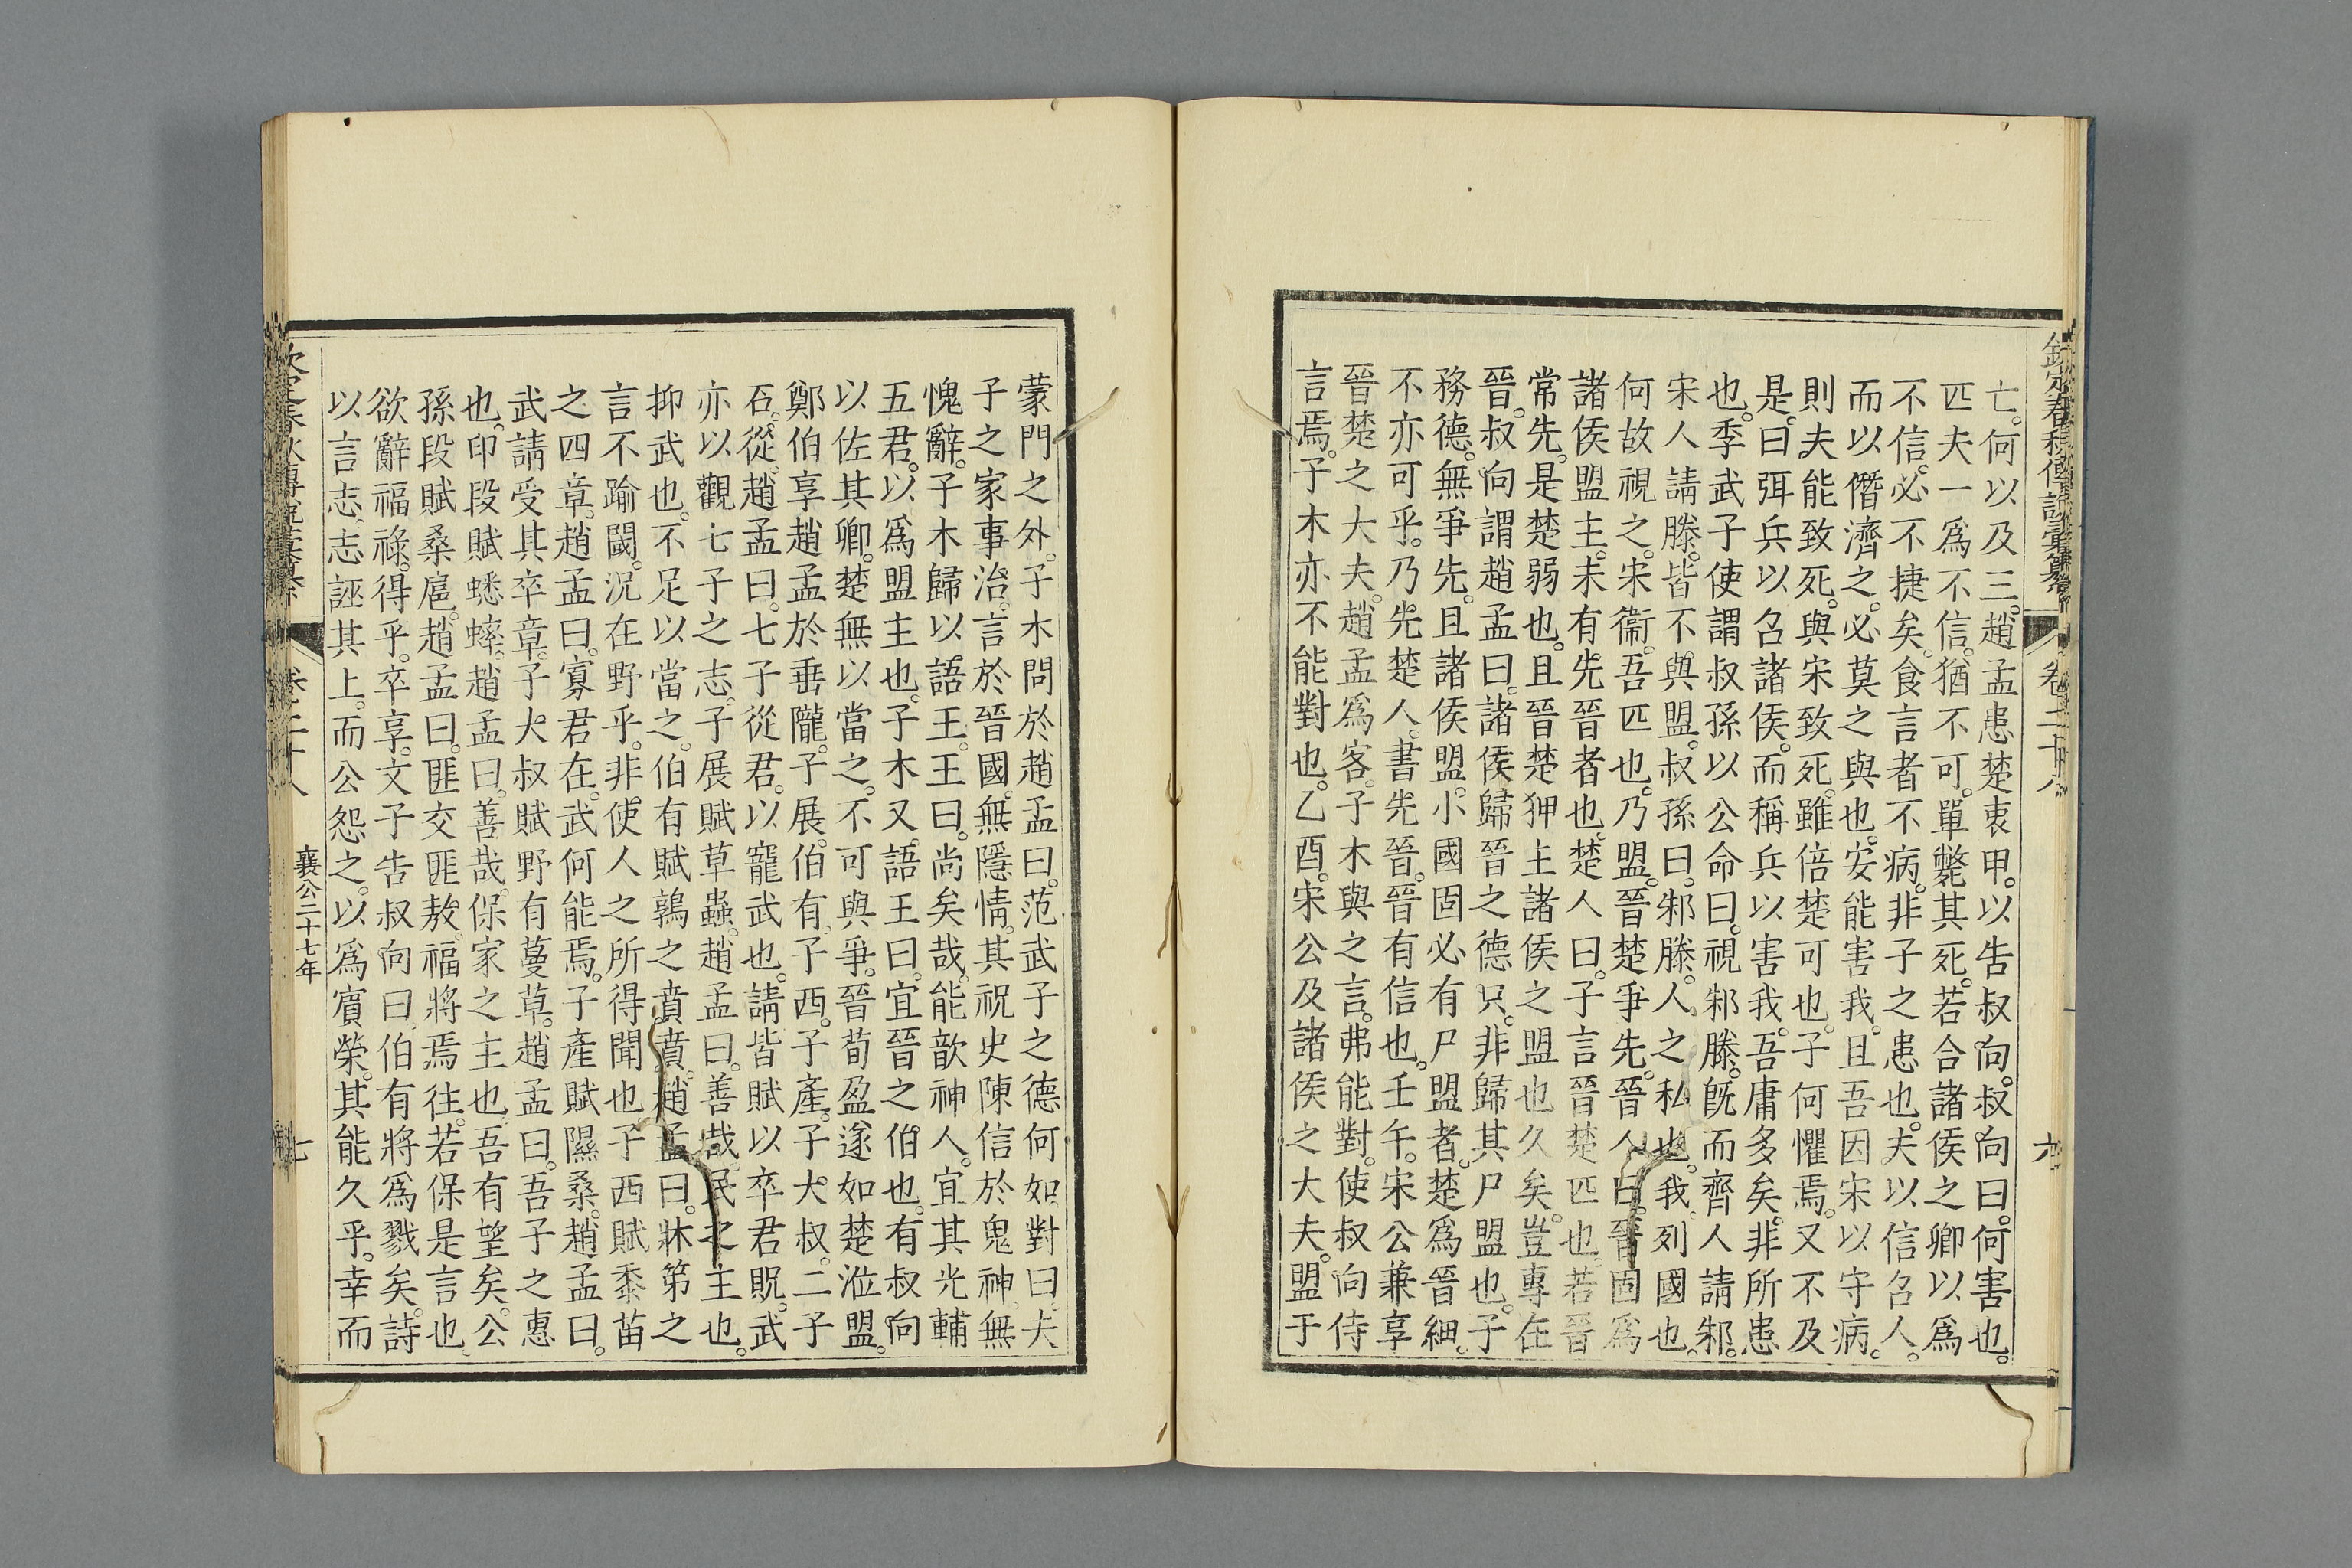 欽定春秋傳說彙纂 卷二十八 六
亡。何以及三。趙孟患楚衷甲。以告叔向。叔向曰。何害也。
匹夫一爲不信。猶不可。單斃其死。若合諸侯之卿以爲
不信。必不捷矣。食言者不病。非子之患也。夫以信召人。
而以僭濟之。必莫之與也。安能害我。且吾因宋以守病。
則夫能致死。與宋致死。雖倍楚可也。子何懼焉。又不及
是。曰弭兵以召諸侯。而稱兵以害我。吾庸多矣。非所患
也。季武子使謂叔孫以公命曰。視邾滕。旣而齊人請邾。
宋人請滕。皆不與盟。叔孫曰。邾滕。人之私也。我列國也。
何故視之。宋衞。吾匹也。乃盟。晉楚爭先。晉人曰。晉固爲
諸侯盟主。未有先晉者也。楚人曰。子言晉楚匹也。若晉
常先。是楚弱也。且晉楚狎主諸侯之盟也久矣。豈專在
晉。叔向謂趙孟曰。諸侯歸晉之德只。非歸其尸盟也。子
務德。無爭先。且諸侯盟。小國固必有尸盟者。楚爲晉細。
不亦可乎。乃先楚人。書先晉。晉有信也。壬午。宋公兼享
晉楚之大夫。趙孟爲客。子木與之言。弗能對。使叔向侍
言焉。子木亦不能對也。乙酉。宋公及諸侯之大夫。盟于
蒙門之外。子木問於趙孟曰。范武子之德何如。對曰。夫
子之家事治。言於晉國。無隱情。其祝史陳信於鬼神。無
愧辭。子木歸以語王。王曰。尚矣哉。能歆神人。宜其光輔
五君。以爲盟主也。子木又語王曰。宜晉之伯也。有叔向
以佐其卿。楚無以當之。不可與爭。晉荀盈遂如楚涖盟。
鄭伯享趙孟於垂隴。子展。伯有。子西。子產。子大叔。二子
石。從。趙孟曰。七子從君。以寵武也。請皆賦以卒君貺。武
亦以觀七子之志。子展賦草蟲。趙孟曰。善哉。民之主也。
抑武也。不足以當之。伯有賦鶉之賁賁。趙孟曰。牀第之
言不踰閾。況在野乎。非使人之所得聞也。子西賦黍苗
之四章。趙孟曰。寡君在。武何能焉。子產賦隰桑。趙孟曰。
武請受其卒章。子大叔賦野有蔓草。趙孟曰。吾子之惠
也。印段賦蟋蟀。趙孟曰。善哉。保家之主也。吾有望矣。公
孫段賦桑扈。趙孟曰。匪交匪敖。福將焉往。若保是言也。
欲辭福祿。得乎。卒享。文子告叔向曰。伯有將爲戮矣。詩
以言志。志誣其上。而公怨之。以爲賓榮。其能久乎。幸而
欽定春秋傳說彙纂 卷二十八 襄公二十七年 七